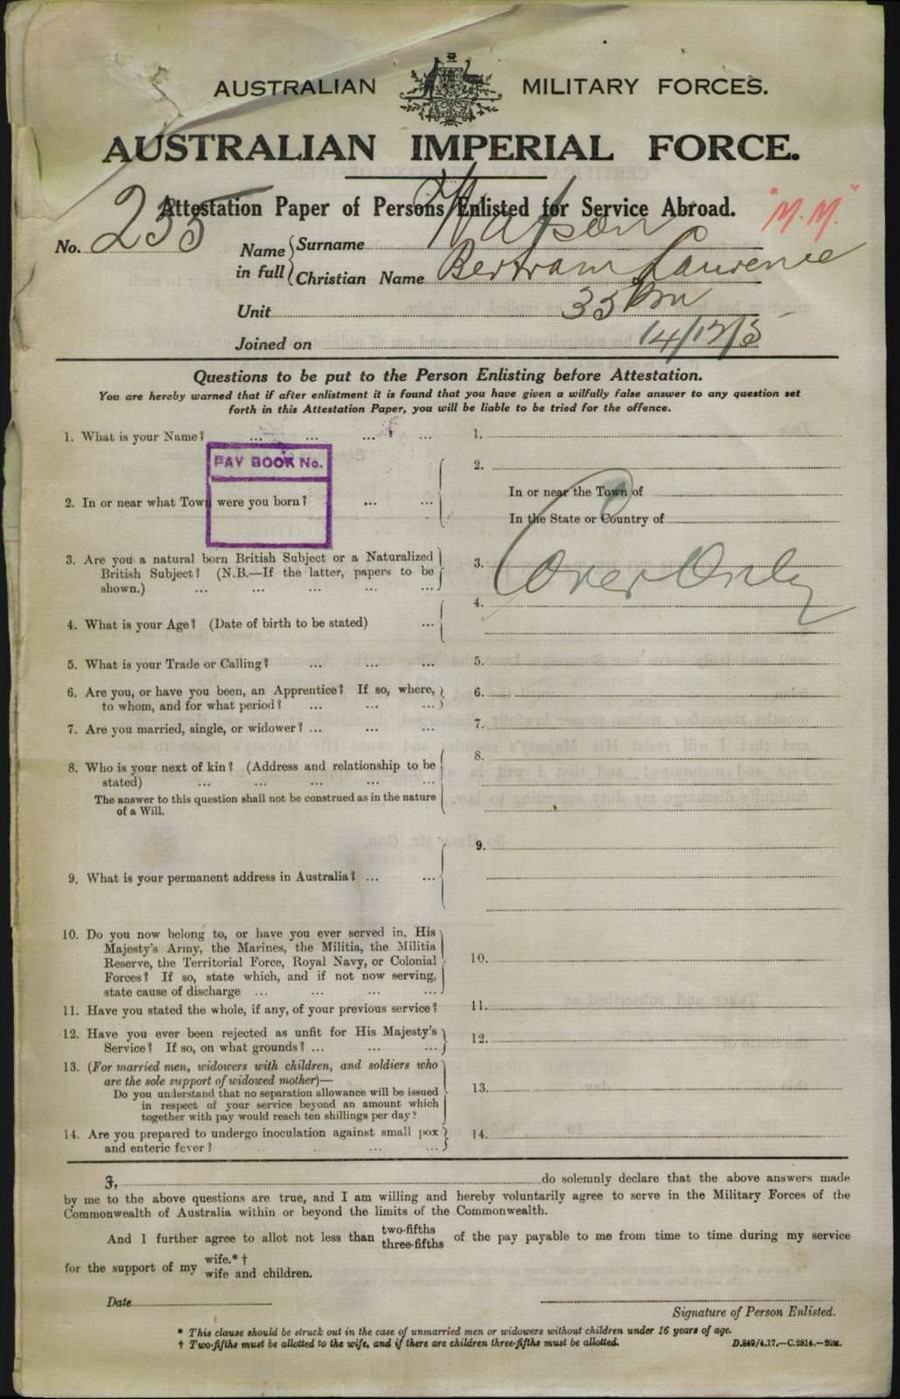 AUSTRALIAN MILITARY FORCES.
AUSTRALIAN IMPERIAL FORCE.
Attestation Paper of Persons Enlisted for Service Abroad.
"M.M."
No. 235
Name in full { Surname Watson
Christian Name Bertram Laurence
Unit 33 Bn
Joined on 14/12/5
Questions to be put to the Person Enlisting before Attestation.
You are hereby warned that if after enlistment it is found that you have given a wilfully false answer to any question set
forth in this Attestation Paper, you will be liable to be tried for the offence.
1. What is your Name? ... ... ... ... 1.
PAY BOOK No.
2. In or near what Town were you born? ... ... 2.
In or near the Town of
In the State or Country of
3. Are you a natural born British Subject or a Naturalized
British Subject? (N.B.—If the latter, papers to be
shown.) ... ... ... ... ... 3.
Cover Only
4. What is your Age? (Date of birth to be stated) ... 4.
5. What is your Trade or Calling? ... ... ... 5.
6. Are you, or have you been, an Apprentice? If so, where,
to whom, and for what period? ... ... ... 6.
7. Are you married, single, or widower? ... ... ... 7.
8. Who is your next of kin? (Address and relationship to be
stated) ... ... ... ... ... 8.
The answer to this question shall not be construed as in the nature
of a Will.
9. What is your permanent address in Australia? ... ... 9.
10. Do you now belong to, or have you ever served in, His
Majesty's Army, the Marines, the Militia, the Militia
Reserve, the Territorial Force, Royal Navy, or Colonial
Forces? If so, state which, and if not now serving,
state cause of discharge ... ... ... ... 10.
11. Have you stated the whole, if any, of your previous service? 11.
12. Have you ever been rejected as unfit for His Majesty's
Service? If so, on what grounds? ... ... ... 12.
13. (For married men, widowers with children, and soldiers who
are the sole support of widowed mother)—
Do you understand that no separation allowance will be issued
in respect of your service beyond an amount which
together with pay would reach ten shillings per day? 13.
14. Are you prepared to undergo inoculation against small pox
and enteric fever? ... ... 14.
I, do solemnly declare that the above answers made
by me to the above questions are true, and I am willing and hereby voluntarily agree to serve in the Military Forces of the
Commonwealth of Australia within or beyond the limits of the Commonwealth.
And I further agree to allot not less than two-fifths three-fifths of the pay payable to me from time to time during my service
for the support of my wife.* † wife and children.
Date
Signature of Person Enlisted.
* This clause should be struck out in the case of unmarried men or widowers without children under 16 years of age.
† Two-fifths must be allotted to the wife, and if there are children three-fifths must be allotted.
D.849/4.17.—C.2814.—20M.